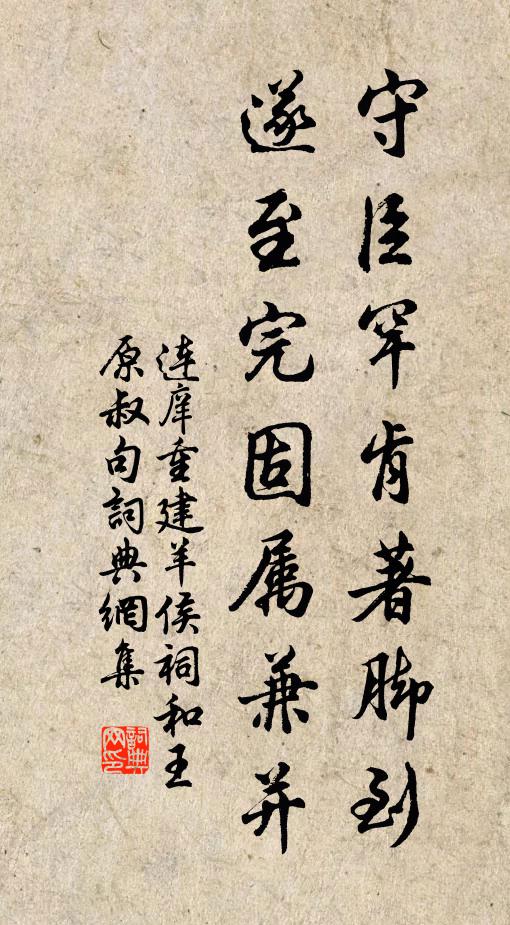 守臣罕肯著脚到
遂至完固属兼并
连庠重建羊侯祠和王
原叔句詞典網集
詞典網印